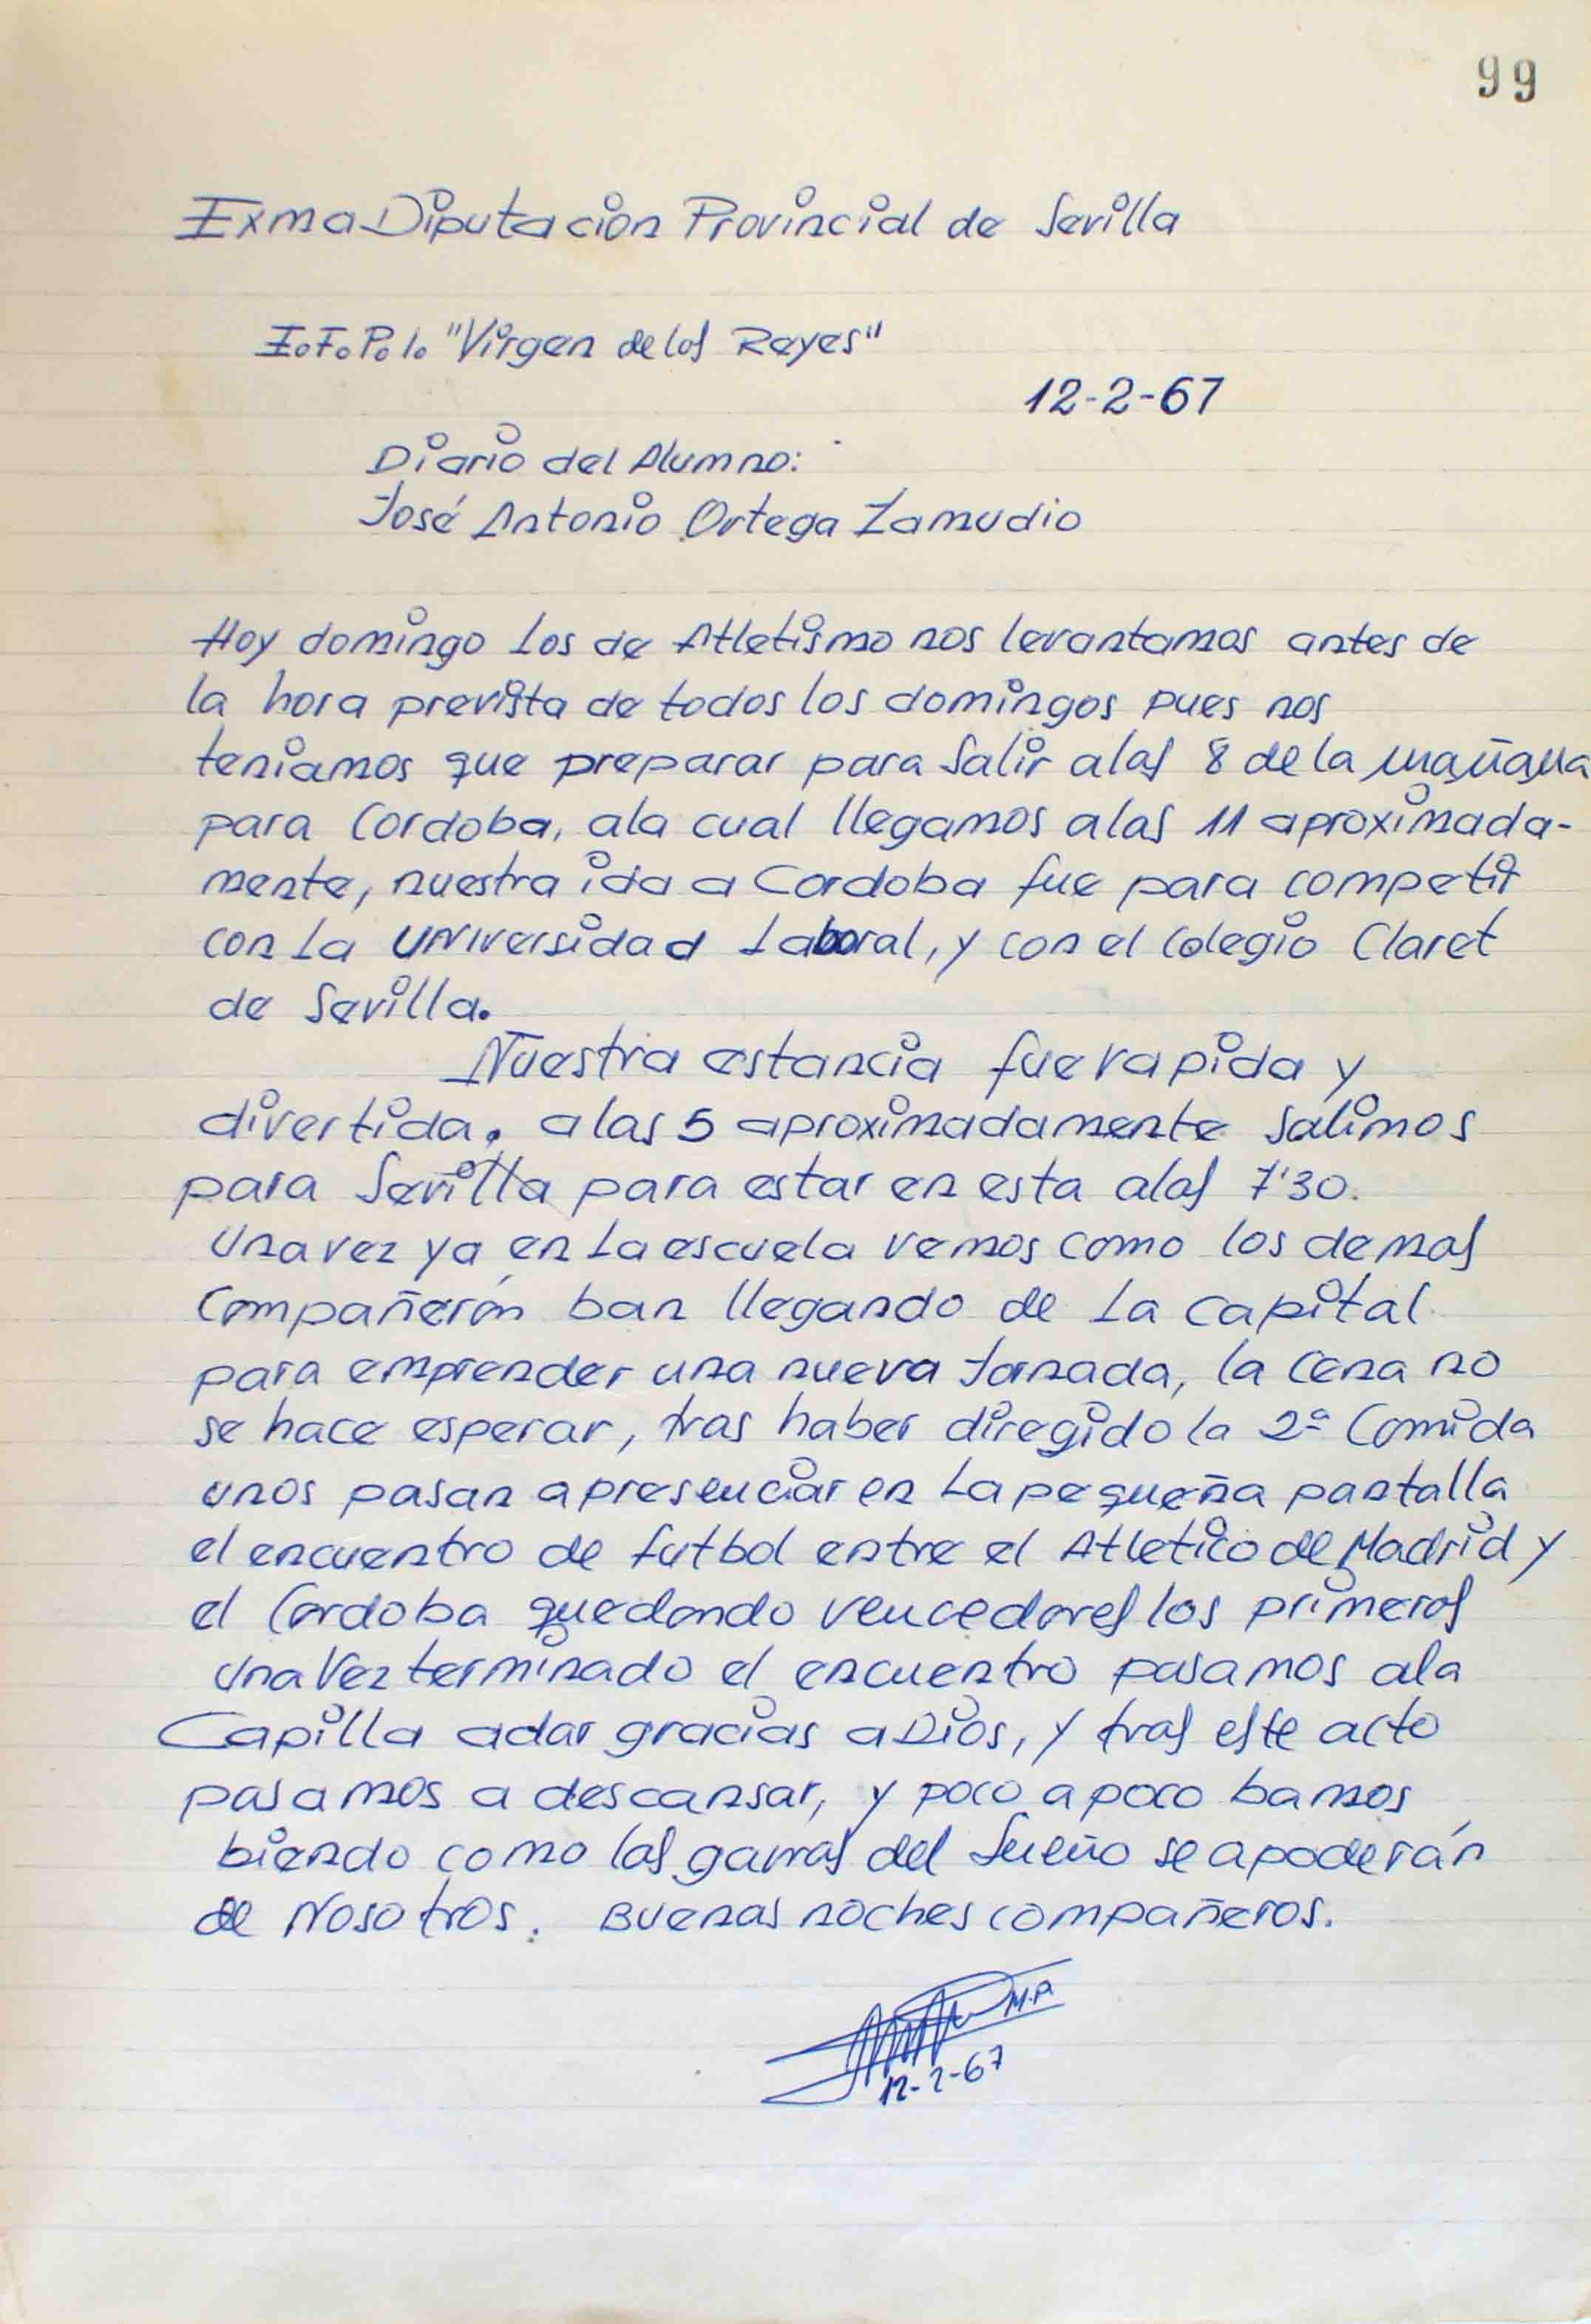 99
Exma Diputacion Provincial de Sevilla
I.F.P.I. "Virgen de los Reyes"
12-2-67
Diario del Alumno:
José Antonio Ortega Zamudio
Hoy domingo los de Atletismo nos levantamos antes de
la hora prevista de todos los domingos pues nos
teniamos que preparar para Salir alas 8 de la mañana
para Cordoba, ala cual llegamos alas 11 aproximada-
mente, nuestra ida a Cordoba fue para competir
con la UNIversidad Laboral, y con el Colegio Claret
de Sevilla.
Nuestra estancia fue rapida y
divertida. alas 5 aproximadamente Salimos
para Sevilla para estar en esta alas 7'30.
Una vez ya en la escuela vemos como los demas
Compañerón ban llegando de la capital
para emprender una nueva Jornada, la cena no
se hace esperar, tras haber diregido la 2ª Comida
unos pasan apresenciar en la pequeña pantalla
el encuentro de futbol entre el Atletico de Madrid y
el Cordoba quedando vencedores los primeros
una Vez terminado el encuentro pasamos ala
Capilla adar gracias a Dios, y tras este acto
pasamos a descansar, y poco apoco bamos
biendo como las garras del Sueño se apoderán
de Nosotros. Buenas noches compañeros.
M.P.
12-2-67